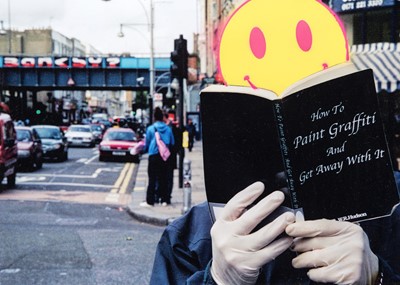 0171 329 9321
How To
Paint Graffiti
And
Get Away With It
How To Paint Graffiti And Get Away With It
W.H.Hudson